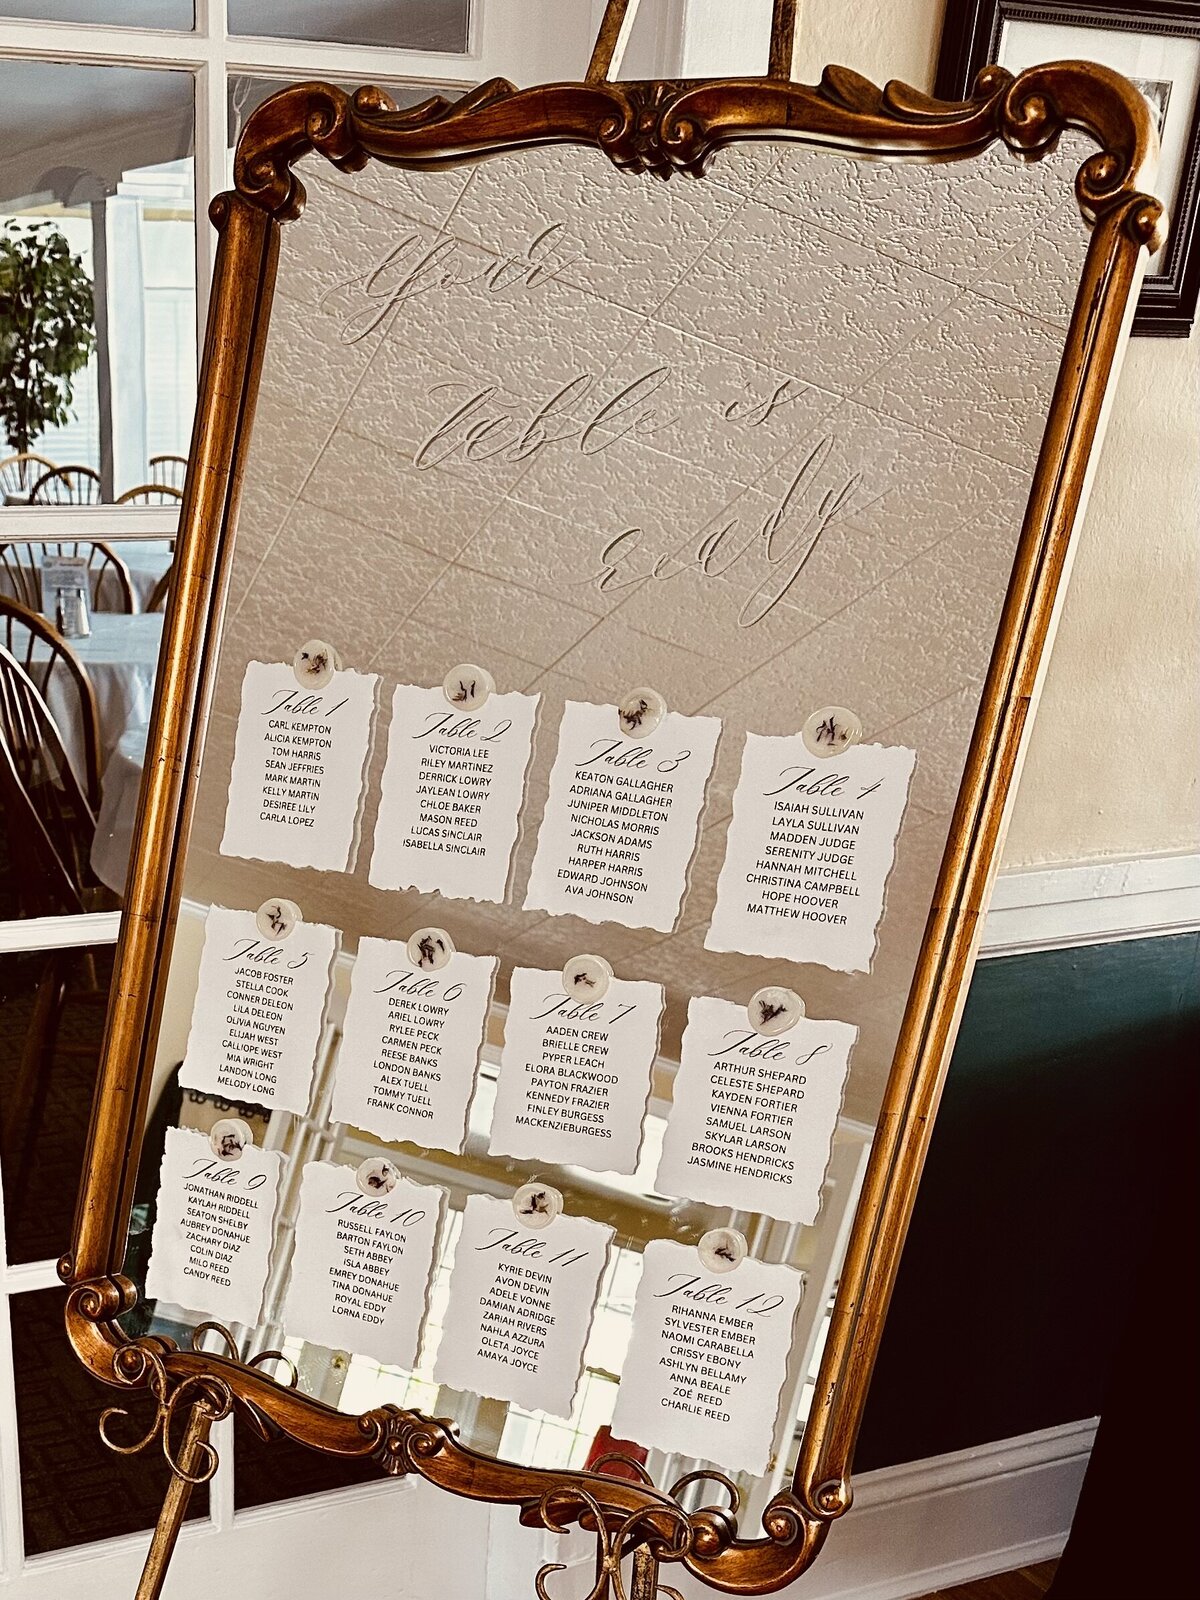 your
table is
ready
Table 1
CARL KEMPTON
ALICIA KEMPTON
TOM HARRIS
SEAN JEFFRIES
MARK MARTIN
KELLY MARTIN
DESIREE LILY
CARLA LOPEZ
Table 2
VICTORIA LEE
RILEY MARTINEZ
DERRICK LOWRY
JAYLEAN LOWRY
CHLOE BAKER
MASON REED
LUCAS SINCLAIR
ISABELLA SINCLAIR
Table 3
KEATON GALLAGHER
ADRIANA GALLAGHER
JUNIPER MIDDLETON
NICHOLAS MORRIS
JACKSON ADAMS
RUTH HARRIS
HARPER HARRIS
EDWARD JOHNSON
AVA JOHNSON
Table 4
ISAIAH SULLIVAN
LAYLA SULLIVAN
MADDEN JUDGE
SERENITY JUDGE
HANNAH MITCHELL
CHRISTINA CAMPBELL
HOPE HOOVER
MATTHEW HOOVER
Table 5
JACOB FOSTER
STELLA COOK
CONNER DELEON
LILA DELEON
OLIVIA NGUYEN
ELIJAH WEST
CALLIOPE WEST
MIA WRIGHT
LANDON LONG
MELODY LONG
Table 6
DEREK LOWRY
ARIEL LOWRY
RYLEE PECK
CARMEN PECK
REESE BANKS
LONDON BANKS
ALEX TUELL
TOMMY TUELL
FRANK CONNOR
Table 7
AADEN CREW
BRIELLE CREW
PYPER LEACH
ELORA BLACKWOOD
PAYTON FRAZIER
KENNEDY FRAZIER
FINLEY BURGESS
MACKENZIEBURGESS
Table 8
ARTHUR SHEPARD
CELESTE SHEPARD
KAYDEN FORTIER
VIENNA FORTIER
SAMUEL LARSON
SKYLAR LARSON
BROOKS HENDRICKS
JASMINE HENDRICKS
Table 9
JONATHAN RIDDELL
KAYLAH RIDDELL
SEATON SHELBY
AUBREY DONAHUE
ZACHARY DIAZ
COLIN DIAZ
MILO REED
CANDY REED
Table 10
RUSSELL FAYLON
BARTON FAYLON
SETH ABBEY
ISLA ABBEY
EMREY DONAHUE
TINA DONAHUE
ROYAL EDDY
LORNA EDDY
Table 11
KYRIE DEVIN
AVON DEVIN
ADELE VONNE
DAMIAN ADRIDGE
ZARIAH RIVERS
NAHLA AZZURA
OLETA JOYCE
AMAYA JOYCE
Table 12
RIHANNA EMBER
SYLVESTER EMBER
NAOMI CARABELLA
CRISSY EBONY
ASHLYN BELLAMY
ANNA BEALE
ZOÉ REED
CHARLIE REED